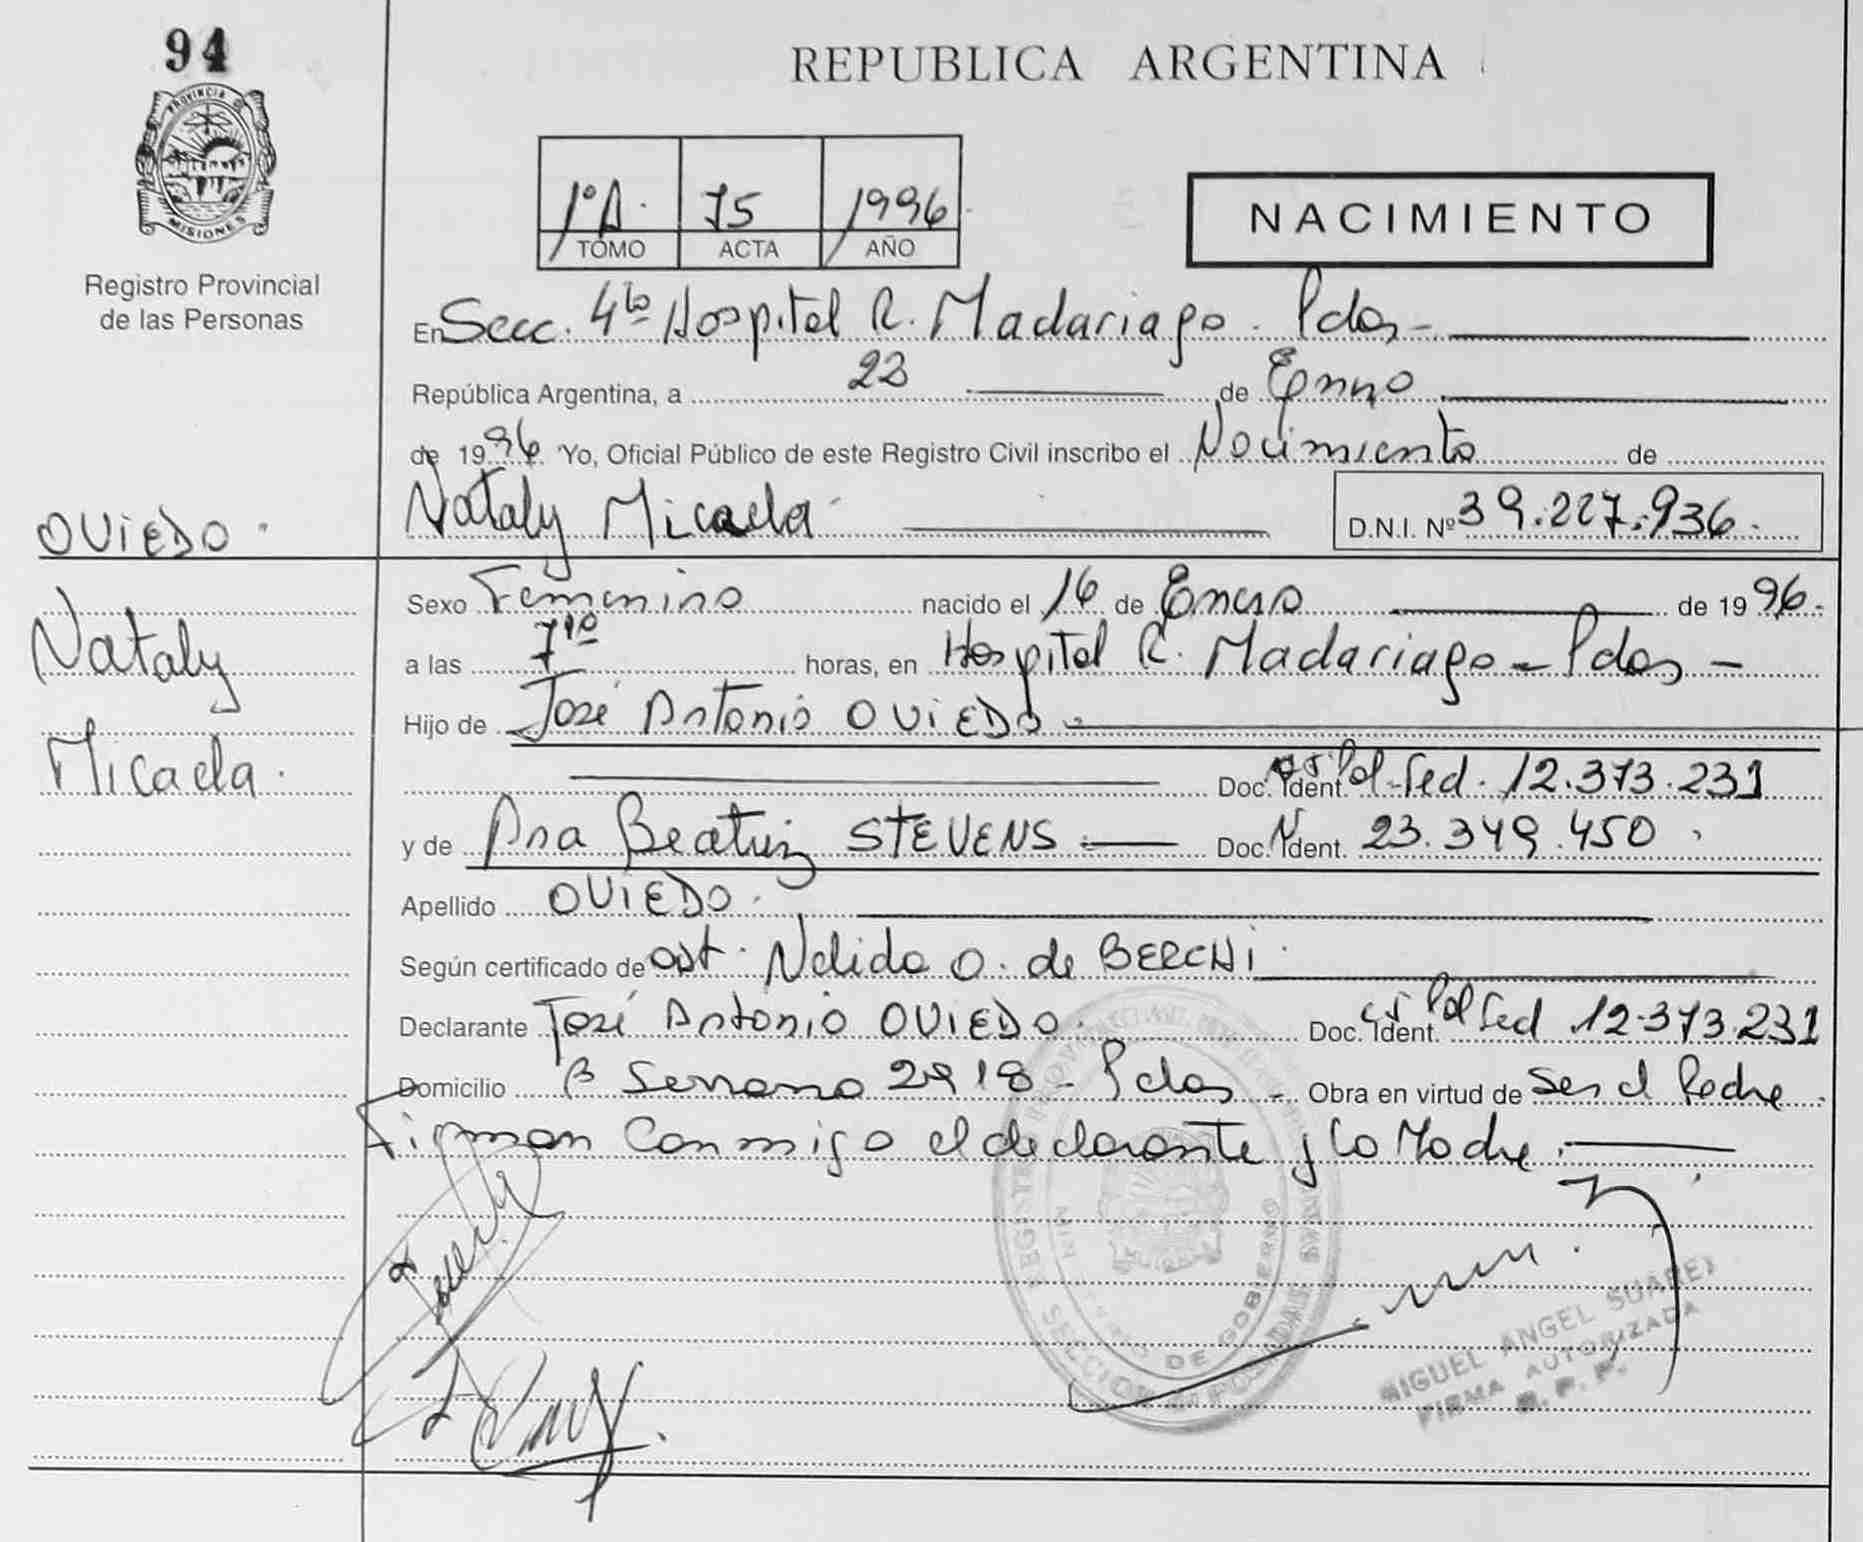 94
REPUBLICA ARGENTINA
PROVINCIA DE
MISIONES
Registro Provincial
de las Personas
1º A. 75 1996
TOMO ACTA AÑO
NACIMIENTO
En Secc. 4ta Hospital R. Madariaga. Pdas -
República Argentina, a 23 de Enero
de 1996. Yo, Oficial Público de este Registro Civil inscribo el Nacimiento de
Nataly Micaela D.N.I. Nº 39.227.936.
OVIEDO.
Nataly
Micaela.
Sexo Femenino nacido el 16 de Enero de 1996.
a las 7 10 horas, en Hospital R. Madariaga - Pdas -
Hijo de José Antonio OVIEDO -
Doc. Ident. Pol-Fed. 12.373.231
y de Ana Beatriz STEVENS Doc. Ident. 23.349.450.
Apellido OVIEDO.
Según certificado de obst. Nelida O. de BERCHI.
Declarante José Antonio OVIEDO. Doc. Ident. Pol Fed 12.373.231
Domicilio Bº Serrano 2918 - Pdas - Obra en virtud de Ser el Padre.
Firman Conmigo el declarante y la Madre.
SECCION
DE GOBIERNO
MIGUEL ANGEL SUAREZ
FIRMA AUTORIZADA
R. P. P.